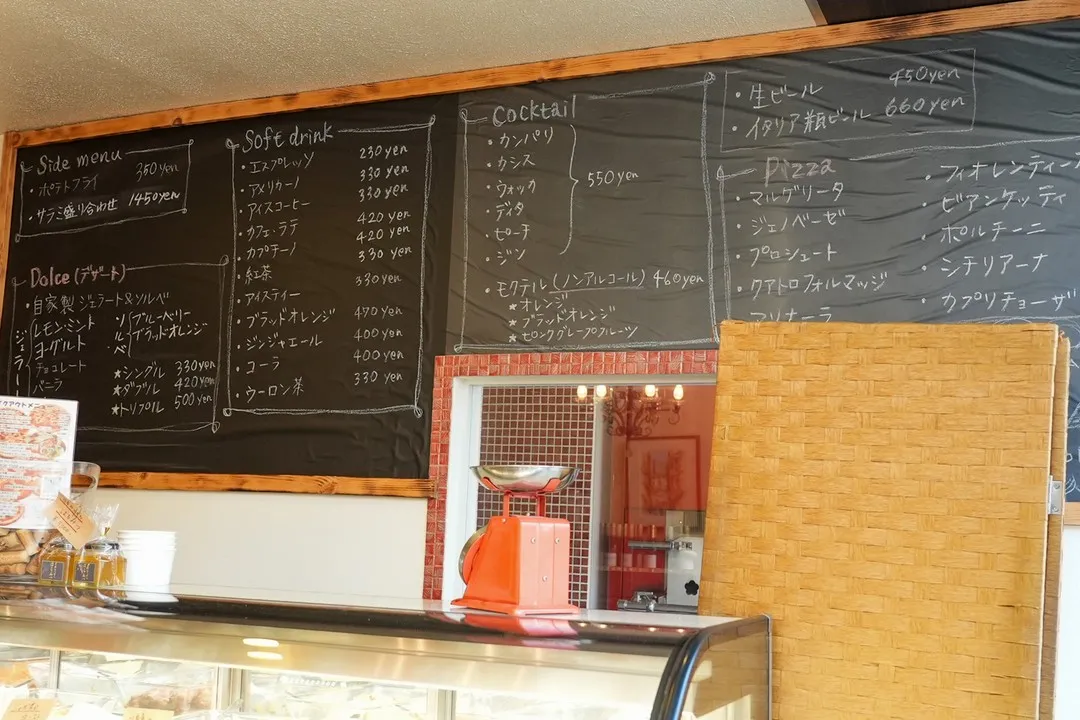 Side menu
・ポテトフライ 350yen
・サラミ盛り合わせ 1450yen
Dolce (デザート)
・自家製 ジェラート&ソルベ
ジェラート
レモンミント
ヨーグルト
チョコレート
バニラ
ソルベ
ブルーベリー
ブラッドオレンジ
★シングル 330yen
★ダブル 420yen
★トリプル 500yen
Soft drink
・エスプレッソ 230yen
・アメリカーノ 330yen
・アイスコーヒー 330yen
・カフェ・ラテ 420yen
・カプチーノ 420yen
・紅茶 330yen
・アイスティー 330yen
・ブラッドオレンジ 470yen
・ジンジャエール 400yen
・コーラ 400yen
・ウーロン茶 330yen
Cocktail
・カンパリ
・カシス
・ウォッカ
・ディタ
・ピーチ
・ジン
550yen
モクテル (ノンアルコール) 460yen
★オレンジ
★ブラッドオレンジ
★ピンクグレープフルーツ
・生ビール 450yen
・イタリア瓶ビール 660yen
Pizza
・マルゲリータ
・ジェノベーゼ
・プロシュート
・クアトロフォルマッジ
マリナーラ
・フィオレンティーナ
・ビアンケッティ
・ポルチーニ
・シチリアーナ
・カプリチョーザ